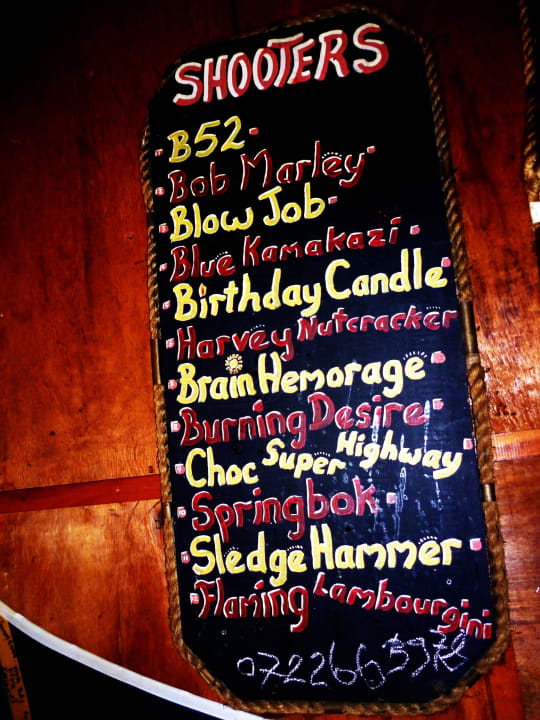 SHOOTERS
B52
Bob Marley
Blow Job
Blue Kamakazi
Birthday Candle
Harvey Nutcracker
Brain Hemorage
Burning Desire
Choc Super Highway
Springbok
Sledge Hammer
Flaming Lambourgini